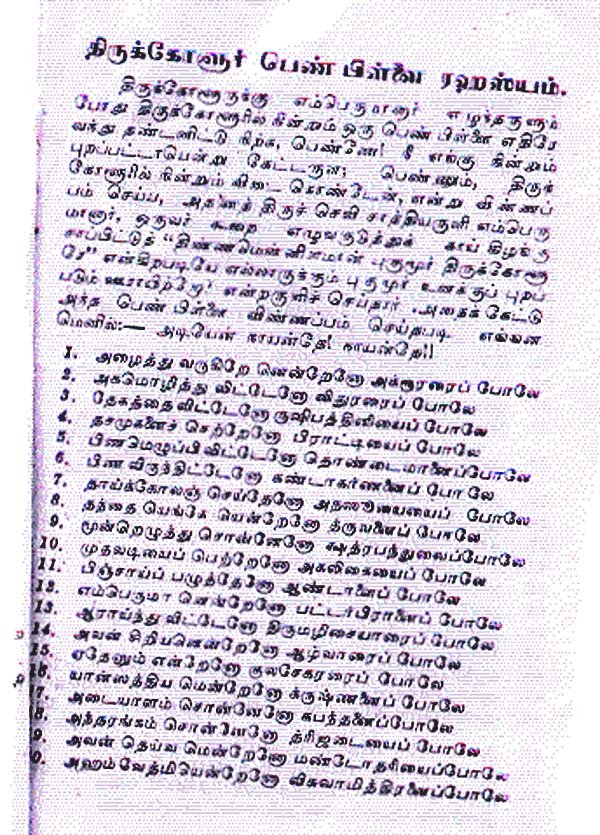 திருக்கோளூர் பெண் பிள்ளை ரஹஸ்யம்.
திருக்கோளூருக்கு எம்பெருமானார் எழுந்தருளும்
போது திருக்கோளூரில் நின்றும் ஒரு பெண் பிள்ளை எதிரே
வந்து தண்டனிட்டு நிற்க, பெண்ணே! நீ எங்கு நின்றும்
புறப்பட்டாயென்று கேட்டருள; பெண்ணும், திருக்
கோளூரில் நின்றும் விடை கொண்டேன், என்று விண்ணப்
பம் செய்ய, அதனைத் திருச் செவி சாத்தியருளி எம்பெரு
மானார், ஒருவர் கூறை எழுவருடுத்துக் காய் கிழங்கு
சாப்பிட்டுத் “திண்ணமென்னிளமான் புகுமூர் திருக்கோளூ
ரே” என்கிறபடியே எல்லாருக்கும் புகுமூர் உனக்குப் புறப்
படும் ஊராயிற்றே? என்றருளிச் செய்தார். அதைக் கேட்டு
அந்த பெண் பிள்ளை விண்ணப்பம் செய்தபடி எங்ஙன
மெனில்:— அடியேன் நாயன்தே! நாயன்தே!!
1. அழைத்து வருகிறே னென்றேனோ அக்ரூரரைப் போலே
2. அகமொழித்து விட்டேனோ விதுரரைப் போலே
3. தேகத்தை விட்டேனோ ருஷிபத்தினியைப் போலே
4. தசமுகனைச் செற்றேனோ பிராட்டியைப் போலே
5. பிணமெழுப்பிவிட்டேனோ தொண்டைமானைப்போலே
6. பிண விருந்திட்டேனோ கண்டாகர்ணனைப் போ லே
7. தாய்க்கோலஞ் செய்தேனோ அநஸூயையைப் போலே
8. தந்தை யெங்கே யென்றேனோ த்ருவனைப் போலே
9. மூன்றெழுத்து சொன்னேனோ க்ஷத்ரபந்துவைப்போலே
10. முதலடியைப் பெற்றேனோ அகலிகையைப் போலே
11. பிஞ்சாய்ப் பழுத்தேனோ ஆண்டாளைப் போலே
12. எம்பெருமா னென்றேனோ பட்டர்பிரானைப் போலே
13. ஆராய்ந்து விட்டேனோ திருமழிசையாரைப் போலே
14. அவன் சிறியனென்றேனோ ஆழ்வாரைப் போலே
15. ஏதேனும் என்றேனோ குலசேகரரைப் போலே
16. யான்ஸத்திய மென்றேனோ க்ருஷ்ணனைப் போலே
7. அடையாளம் சொன்னேனோ கபந்தனைப்போலே
8. அந்தரங்கம் சொன்னேனோ த்ரிஜடையைப் போலே
9. அவன் தெய்வ மென்றேனோ மண்டோதரியைப்போலே
0. அஹம் வேத்மியென்றேனோ விசுவாமித்திரனைப்போலே